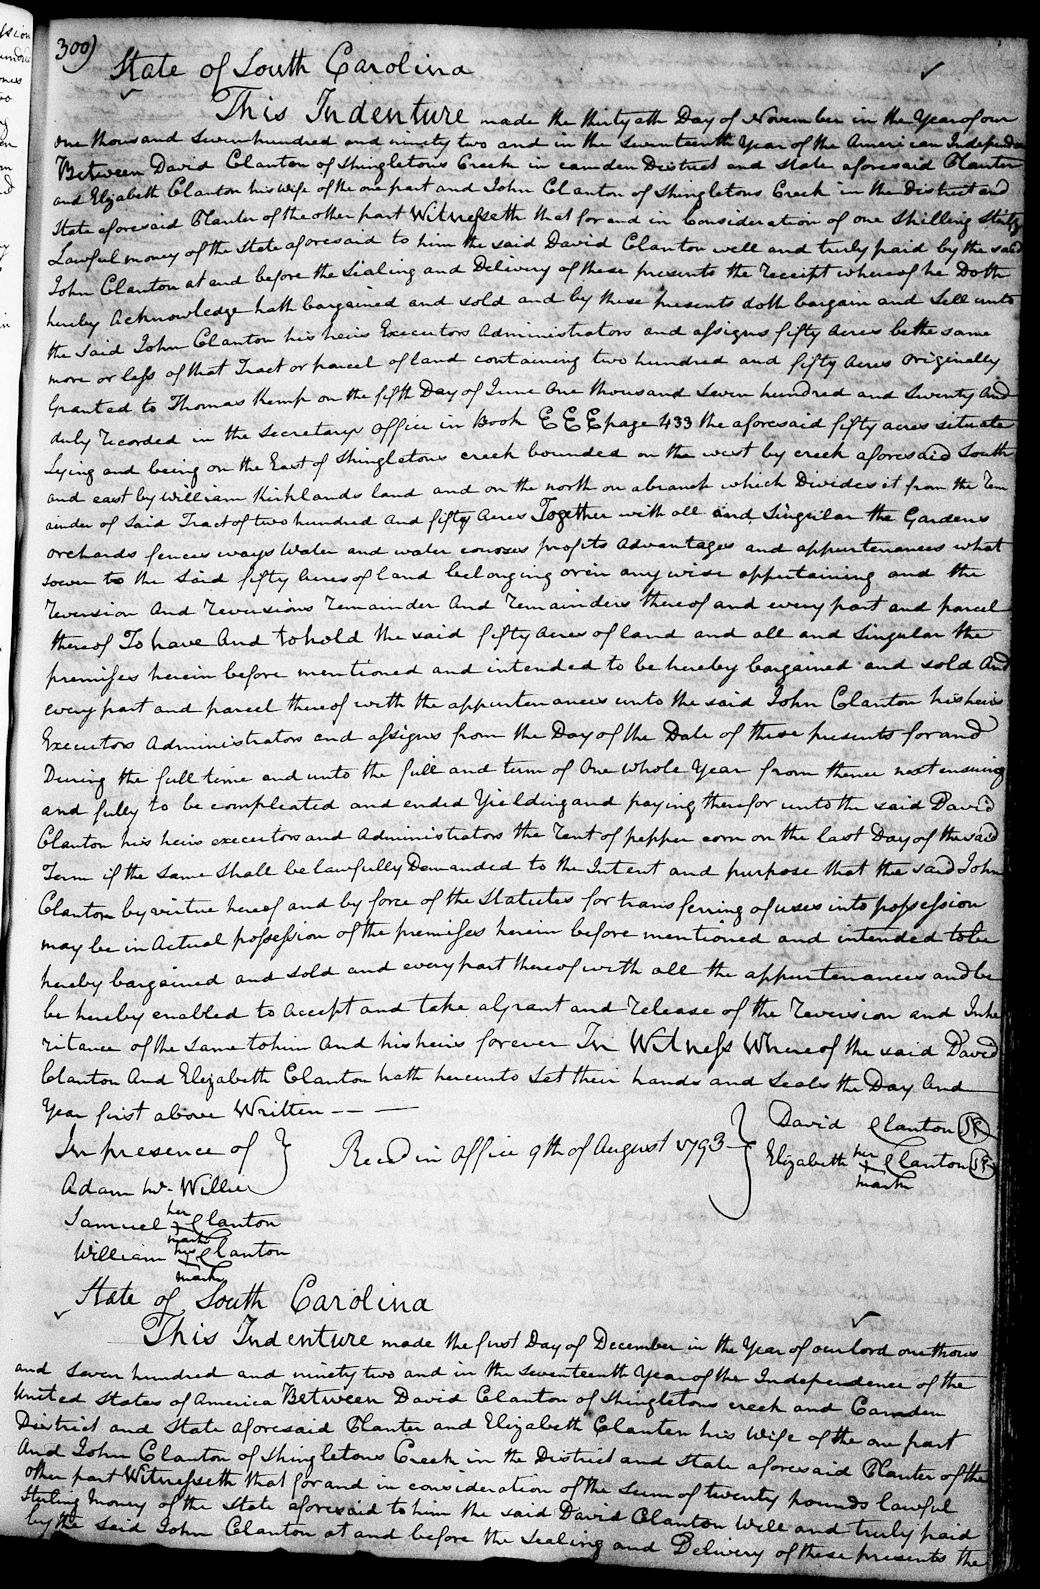 300)
State of South Carolina
This Indenture made the thirtyeth Day of November in the Year of our
one thousand Sevenhundred and ninety two and in the Seventeenth Year of the American Independen
Between David Clanton of Shingletons Creek in camden District and state aforesaid Planter
and Elizabeth Clanton his wife of the one part and John Clanton of Shingletons Creek in the District and
State aforesaid Planter of the other part Witnesseth that for and in Consideration of one Shilling Sterlg
Lawful money of the State aforesaid to him the said David Clanton well and truly paid by the said
John Clanton at and before the Sealing and Delivery of these presents the receipt whereof he Doth
hereby Acknowledge hath bargained and sold and by these presents doth bargain and Sell unto
the said John Clanton his heirs Executors Administrators and assigns fifty Acres be the same
more or less of that Tract or parcel of land containing two hundred and fifty Acres Originally
Granted to Thomas Kemp on the fifth Day of June One thousand Seven hundred and Seventy And
duly recorded in the Secretarys office in Book E E E page 433 the aforesaid fifty acres situate
Lying and being on the East of Shingletons creek bounded on the west by creek aforesaid South
and east by William Kirklands land and on the north on a branch which Divides it from the Rem
ainder of Said Tract of two hundred And fifty Acres Together with all and Singular the Gardens
orchards fences ways Water and water courses profits Advantages and appurtenances what
soever to the Said fifty Acres of land belonging or in any wise appertaining and the
Reversion And reversions remainder And remainders thereof and every part and parcel
thereof To have And to hold the said fifty Acres of land and all and Singular the
premises herein before mentioned and intended to be hereby bargained and sold And
every part and parcel thereof with the appurtenances unto the said John Clanton his heirs
Executors Administrators and assigns from the Day of the Date of these presents for and
During the full time and unto the full and term of One whole Year from thence next ensuing
and fully to be compleated and ended Yielding and paying therefor unto the said David
Clanton his heirs executors and Administrators the Rent of pepper corn on the last Day of the said
Term if the same shall be lawfully Demanded to the Intent and purpose that the said John
Clanton by virtue hereof and by force of the Statutes for transferring of uses into possession
may be in Actual possession of the premises herein before mentioned and intended to be
hereby bargained and sold and every part thereof with all the appurtenances and be
be hereby enabled to accept and take a Grant and release of the reversion and Inhe
ritance of the same to him And his heirs forever In Witness Whereof the said David
Clanton And Elizabeth Clanton hath hereunto Set their hands and Seals the Day And
Year first above Written
In presence of } Recd in office 9th of August 1793 } David Clanton
Adam W. Willie Elizabeth her + mark Clanton
Samuel her + mark Clanton
William his + mark Clanton
State of South Carolina
This Indenture made the first Day of December in the Year of our Lord one thous
and Seven hundred and ninety two and in the Seventeenth Year of the Independence of the
United States of America Between David Clanton of Shingletons creek and Camden
District and State aforesaid Planter and Elizabeth Clanton his Wife of the one part
And John Clanton of Shingletons Creek in the District and State aforesaid Planter of the
other part Witnesseth that for and in consideration of the Sum of twenty pounds lawful
Sterling Money of the State aforesaid to him the said David Clanton Well and truly paid
by the said John Clanton at and before the Sealing and Delivery of these presents the